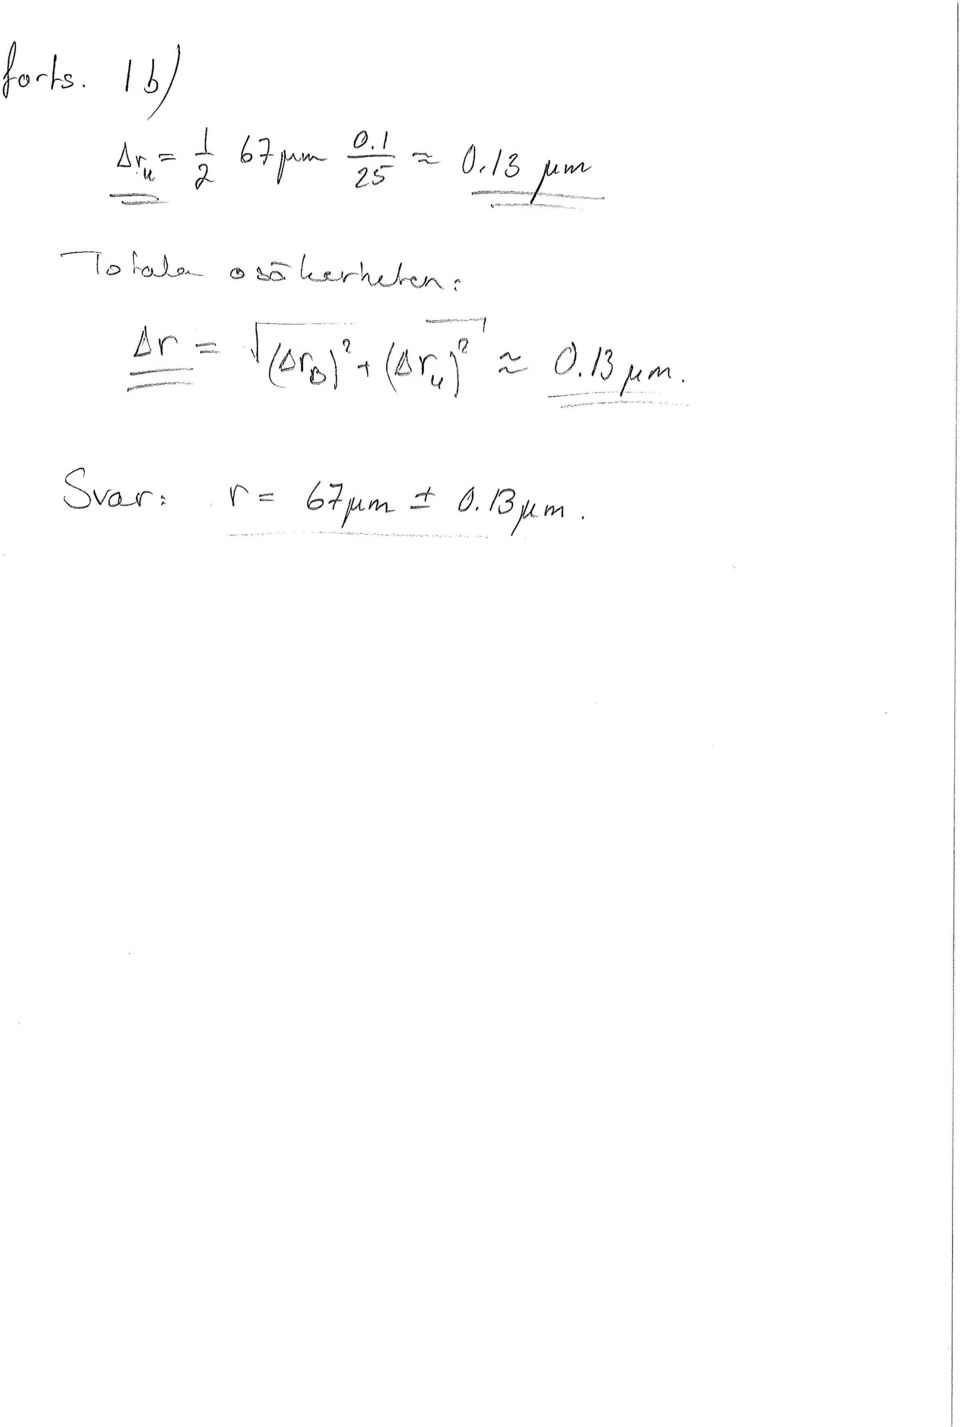 forts. 1b)
Δr_u = 1/2 67 μm 0.1/25 ≈ 0.13 μm
Totala osäkerheten:
Δr = √((Δr_B)² + (Δr_u)²) ≈ 0.13 μm.
Svar: r = 67 μm ± 0.13 μm.